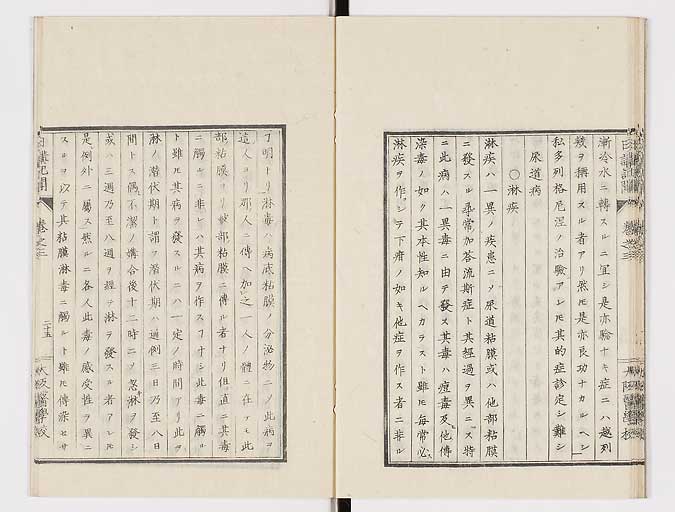 漸冷水ニ轉スルニ宜シ是亦驗ナキ症ニハ越列
幾ヲ稱用スル者アリ然𪜈是亦良功ナカルヘシ
私多列格尼涅ノ治驗アレ𪜈其的症診定シ難シ
尿道病
〇淋疾
淋疾ハ一異ノ疾患ニノ尿道粘膜或ハ他部粘膜
ニ發スル尋常加答流斯症ト其經過ヲ異ニス特
ニ此病ハ一異毒ニ由テ發ス其毒ハ痘毒及他傳
染毒ノ如ク其本性知ルヘカラスト雖𪜈每常必
淋疾ヲ作シテ下疳ノ如キ他症ヲ作ス者ニ非ル
了明トリ淋毒ハ病底粘膜ノ分泌物ニノ此病ヲ
這人ヨリ那人ニ傳ヘ加之一人ノ體ニ在テモ此
部粘膜ヨリ彼部粘膜ニ傳ル者ナリ但直ニ其毒
ニ觸ルニ非レハ其病ヲ作スヿナシ此毒ニ觸ル
ト雖𪜈其病ヲ發スルニハ一定ノ時間アリ此ヲ
淋ノ潛伏期ト謂フ潛伏期ハ通例三日乃至八日
間トス偶不潔ノ媾合後十二時ニノ忽淋ヲ發シ
或ハ三週乃至八週ヲ經テ淋ヲ發スル者アレ𪜈
是例外ニ屬ス然ルニ各人此毒ノ感受性ヲ異ニ
スルヲ以テ其粘膜淋毒ニ觸ルト雖𪜈傳染セサ
日講記聞
卷之三
二十五
大阪醫學校